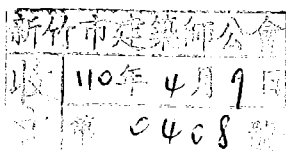 新竹市建築師公會
收 110年4月9日
文 第 0408 號